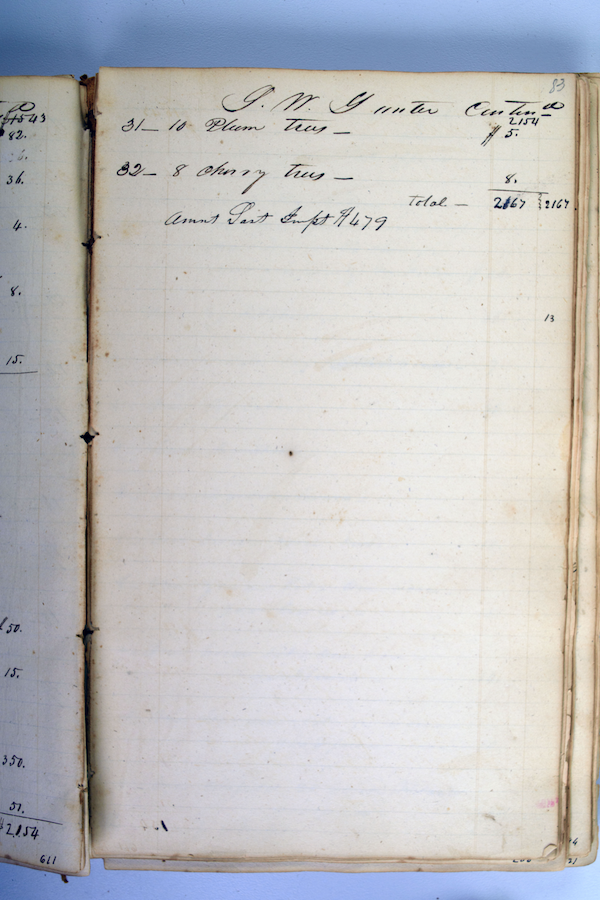 43
82.
36.
4.
8.
15.
50.
15.
350.
51.
$2,154
611
83
G. W. Gunter Contind
2154
31 – 10 Plum trees – $5.
32 – 8 Cherry trees – 8.
Total – 2167 2167
Amnt Last Impt $479
13